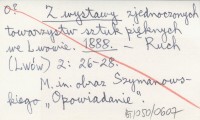 Z wystawy zjednoczonych
towarzystw sztuk pięknych
we Lwowie. 1888. — Ruch
(Lwów) 2: 26-28.
M. in. obraz Szymanows-
kiego "Opowiadanie".